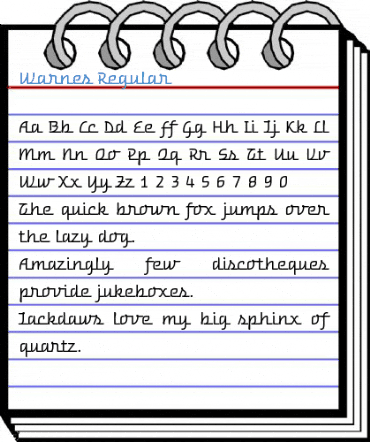 Warnes Regular
Aa Bb Cc Dd Ee ff Gg Hh Ii Jj Kk Ll
Mm Nn Oo Pp Qq Rr Ss Tt Uu Vv
Ww Xx Yy Zz 1 2 3 4 5 6 7 8 9 0
The quick brown fox jumps over
the lazy dog.
Amazingly few discotheques
provide jukeboxes.
Jackdaws love my big sphinx of
quartz.